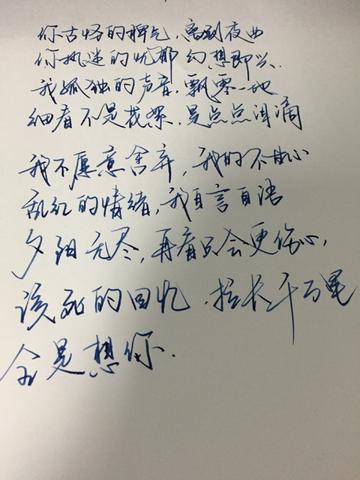 你古怪的脾气,离别夜曲
你执迷的忧郁 幻想即兴.
我孤独的声音,飘零一地
细看不是花絮,是点点泪滴
我不愿意舍弃,我的不甘心
乱红的情绪,我自言自语
夕阳无尽,再看只会更伤心,
该死的回忆,拉长千万里
全是想你.